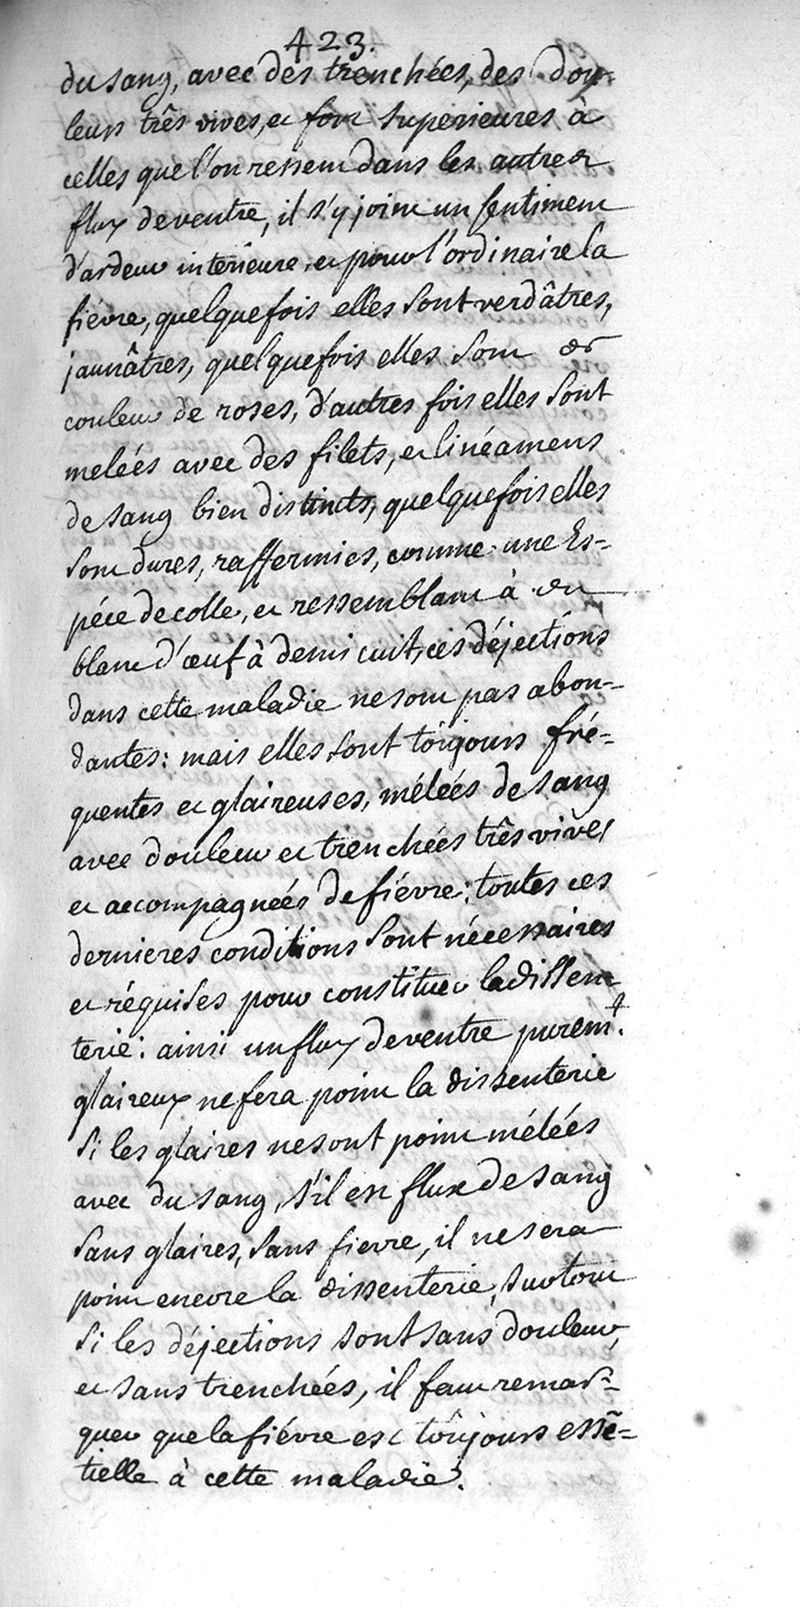 423.
du sang, avec des trenchées, des dou-
leurs três vives, et fort superieures à
celles que l'on ressent dans les autres
flux de ventre, il s'y joint un sentiment
d'ardeur interieure, et pour l'ordinaire la
fiévre, quelquefois elles sont verdâtres,
jaunâtres, quelquefois elles sont de
couleur de roses, d'autres fois elles sont
meleés avec des filets, et linéamens
de sang bien distincts, quelquefois elles
sont dures, raffermies, comme une Es=
péce de colle, et ressemblant à du
blanc d'œuf à demi cuit, ces déjections
dans cette maladie ne sont pas abon-
dantes: mais elles sont toûjours fré=
quentes et glaireuses, méleés de sang
avec douleur et trenchées três vives
et accompagneés de fiévre: toutes ces
dernieres conditions sont nécessaires
et réquises pour constituer la dissen-
terie: ainsi un flux de ventre purem.t
glaireux ne fera point la dissenterie
si les glaires ne sont point méleés
avec du sang, s'il est flux de sang
sans glaires, sans fievre, il ne sera
point encore la dissenterie, surtout
si les déjections sont sans douleur,
et sans trenchées, il faut remar=
quer que la fiévre est toûjours essẽ=
tielle à cette maladie.